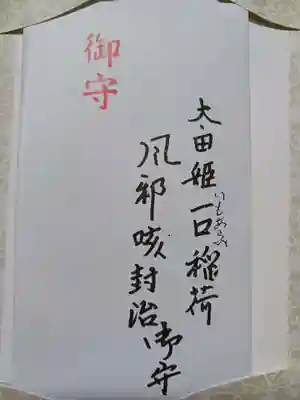 太田姫一口稲荷
いもあらい
風邪咳封治御守
御守